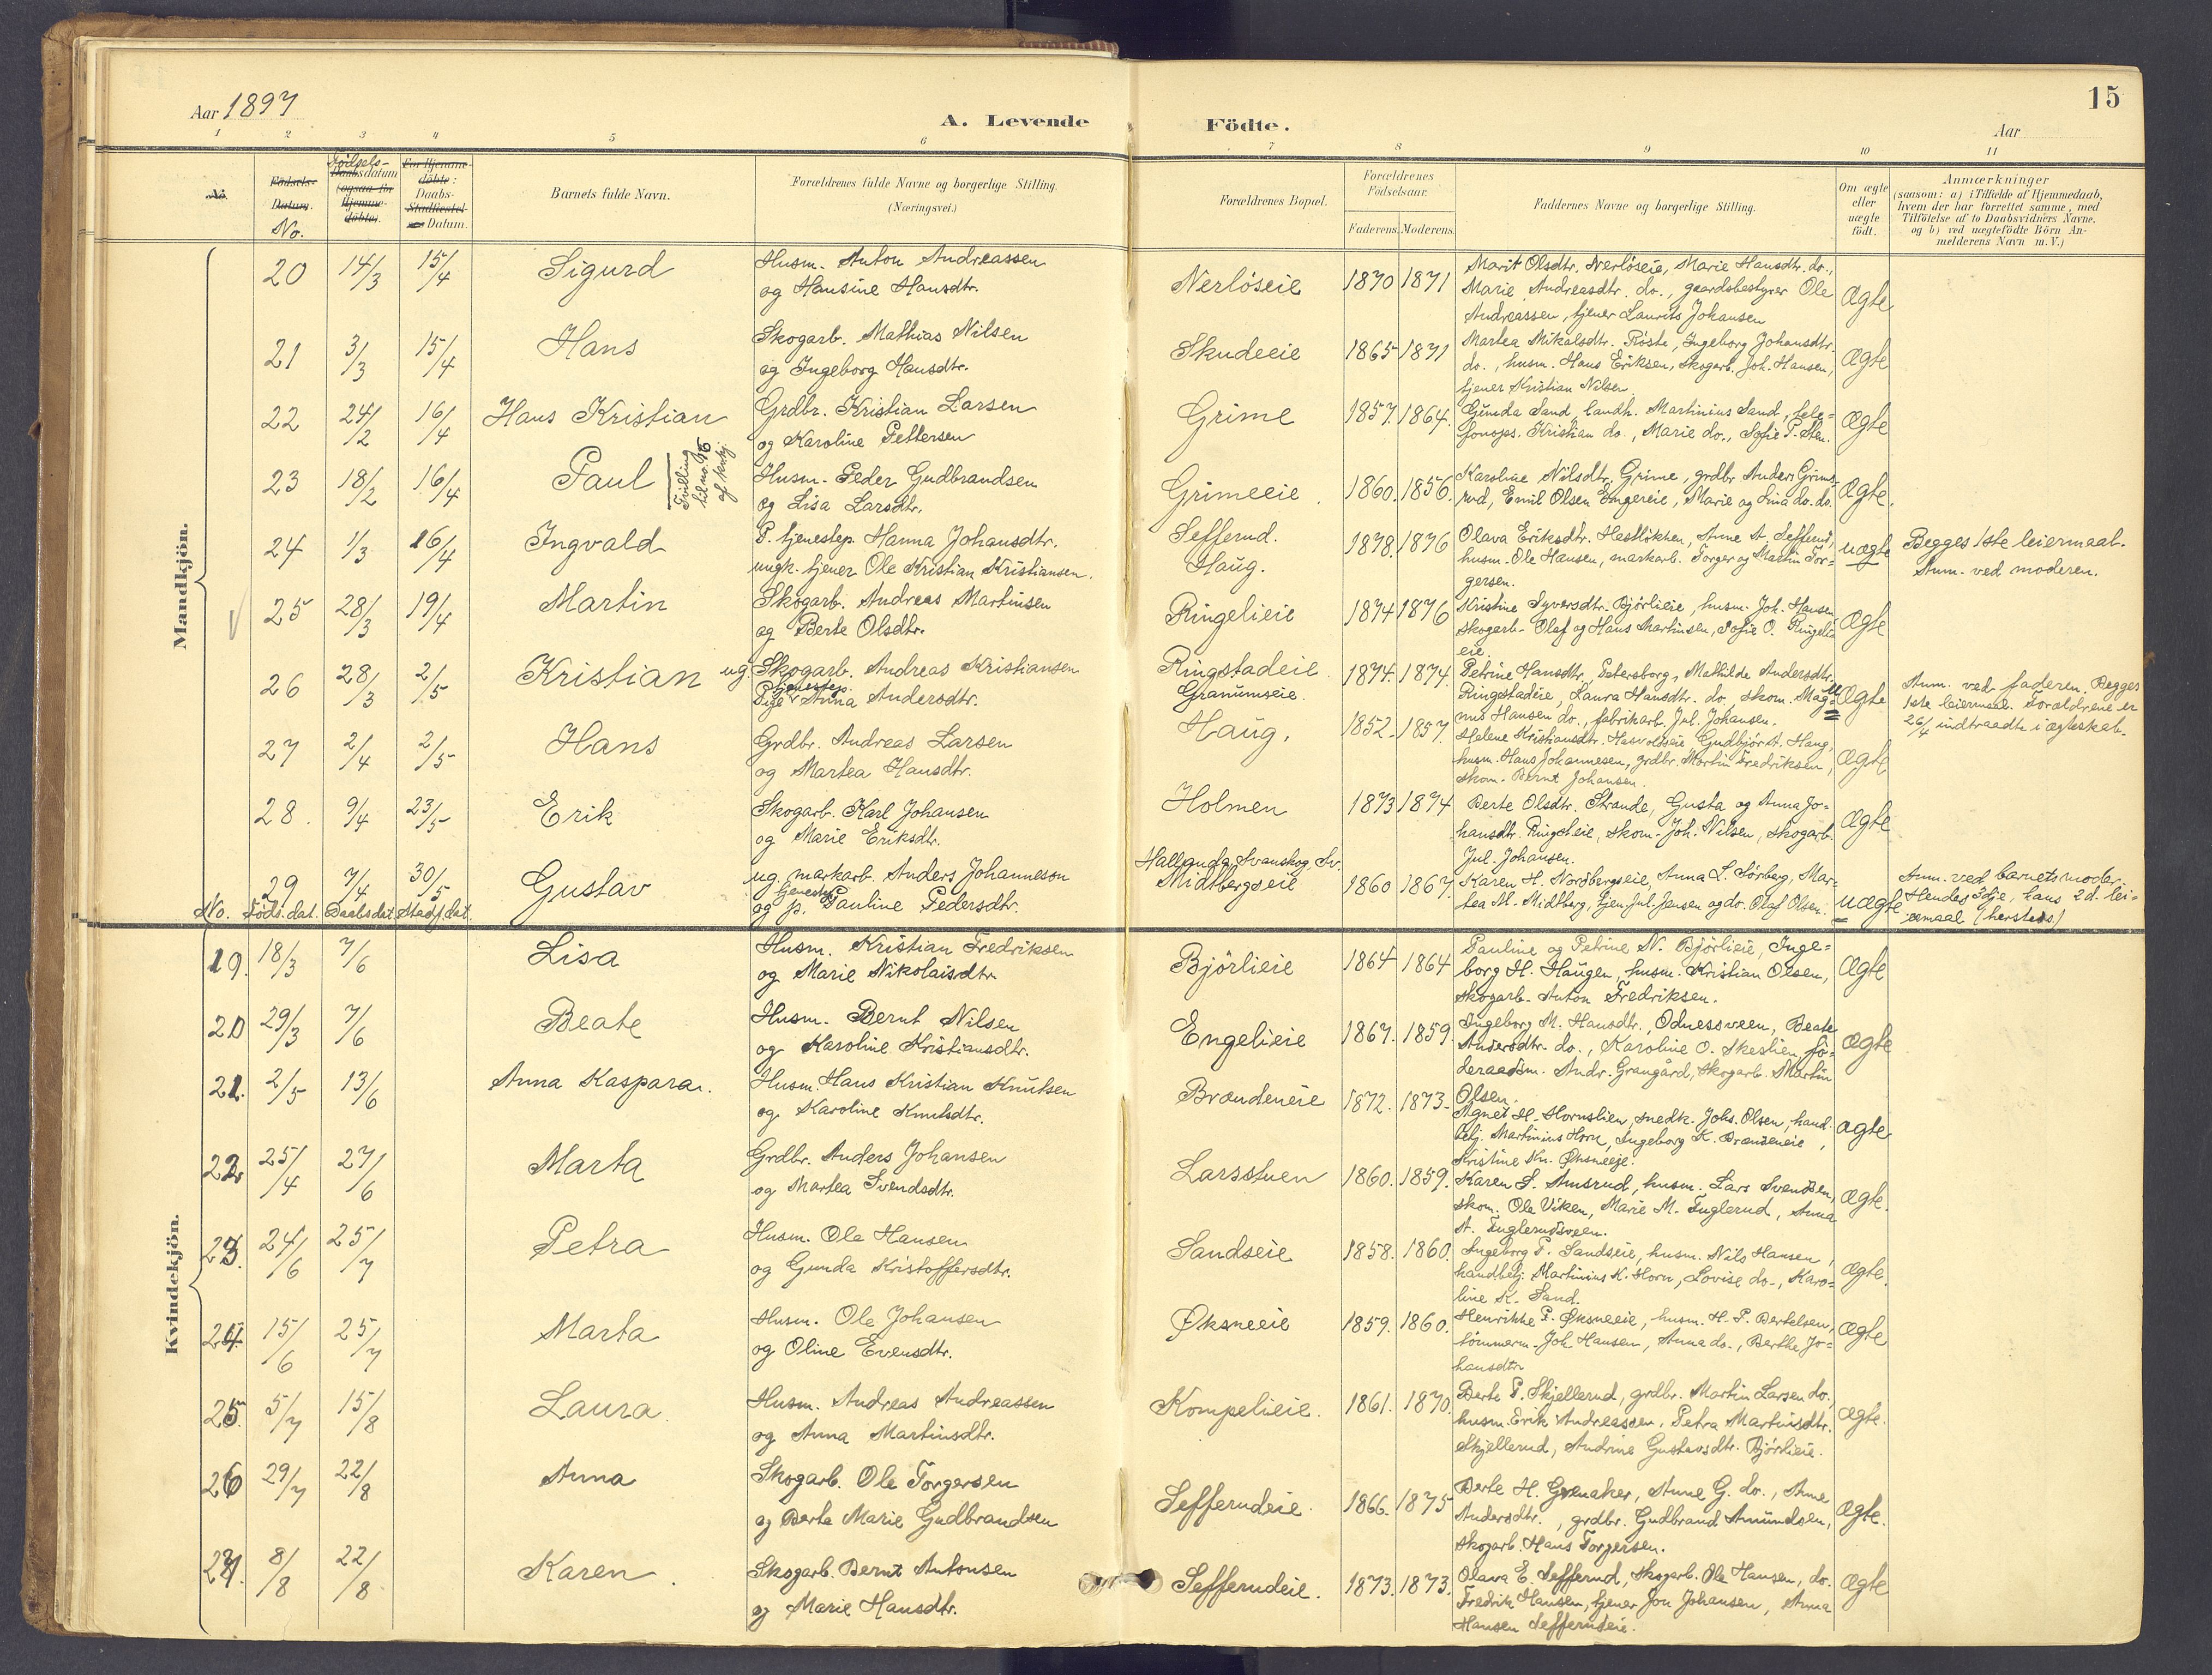 Aar 1897
A. Levende
Födte.
15
Aar
1 2 3 4 5 6 7 8 9 10 11
No.
Födsels-Datum.
No.
Födsels-
Daabsdatum (ogsaa for Hjemmedöbte).
For Hjemmedöbte: Daabs-Stadfæstelses-Datum.
Barnets fulde Navn.
Forældrenes fulde Navne og borgerlige Stilling.
(Næringsvei.)
Forældrenes Bopæl.
Forældrenes Födselsaar.
Faderens. Moderens.
Faddernes Navne og borgerlige Stilling.
Om ægte eller uægte födt.
Anmærkninger
(saasom: a) i Tilfælde af Hjemmedaab, hvem der har forrettet samme, med Tilföielse af to Daabsvidners Navne, og b) ved uægtefödte Börn Anmelderens Navn m. V.)
Mandkjön.
20 14/3 15/4 Sigurd Husm. Anton Andreassen
og Hansine Hansdtr. Nerlöseie 1870 1871
Marit Olsdtr. Nerlöseie, Marie Hansdtr. do.,
Marie Andreasdtr. do., gaardsbestyrer Ole
Andreassen, tjener Laurits Johansen
ægte
21 3/3 15/4 Hans Skogarb. Mathias Nilsen
og Ingeborg Hansdtr. Skudeeie 1865 1871
Martea Mikalsdtr. Röste, Ingeborg Johansdtr.
do., husm. Hans Eriksen, skogarb. Joh. Hansen,
tjener Kristian Nilsen
ægte
22 24/2 16/4 Hans Kristian Grdbr. Kristian Larsen
og Karoline Pettersen Grime 1857. 1864.
Gunda Sand, landh. Martinius Sand, tele=
fonops. Kristian do., Marie do., Sofie P. Sten.
ægte
23 18/2 16/4 Paul Tvilling til no. 16 af kvkj. Husm. Peder Gudbrandsen
og Lisa Larsdtr. Grimeeie. 1860. 1856.
Karoline Nilsdtr. Grime, grdbr. Anders Grims=
rud, Emil Olsen Engereie, Marie og Lina do. do.
ægte.
24 1/3 16/4 Ingvald P. tjenestep. Hanna Johansdtr.
ungk. tjener Ole Kristian Kristiansen. Sefferud.
Haug. 1878. 1876
Olava Eriksdtr. Hestlökken, Anne A. Sefferud,
husm. Ole Hansen, markarb. Torger og Martin Tor=
gersen.
uægte
Begges 1ste leiermaal.
Anm. ved moderen.
25 28/3 19/4 Martin Skogarb. Andreas Martinsen
og Berte Olsdtr. Ringelieie 1874 1876
Kristine Syversdtr. Björlieie, husm. Joh. Hansen
skogarb. Olaf og Hans Martinsen, Sofie O. Ringeli
eie.
ægte
26 28/3 2/5 Kristian ug. Skogarb. Andreas Kristiansen
Pige tjenestep. Anna Andersdtr. Ringstadeie.
Granumseie. 1874. 1874.
Petrine Hansdtr. Petersborg, Mathilde Andersdtr.
Ringstadeie, Laura Hansdtr. do., skom. Mag=
nus Hansen do., fabrikarb. Jul. Johansen.
uægte
Anm. ved faderen. Begges
1ste leiermaal. Forældrene er
26/4 indtraadte i ægteskab.
27 2/4 2/5 Hans Grdbr. Andreas Larsen
og Martea Hansdtr. Haug. 1852. 1857.
Helene Kristiansdtr. Hasvoldseie, Gudbjör A. Haug,
husm. Hans Johannesen, grdbr. Martin Fredriksen,
skom. Bernt Johansen.
ægte
28. 9/4 23/5 Erik Skogarb. Karl Johansen
og Marie Eriksdtr. Holmen 1873 1874
Berte Olsdtr. Strande, Gusta og Anna Jo=
hansdtr. Ringelieie, skom. Joh. Nilsen, skogarb.
Jul. Johansen.
ægte
29 7/4 30/5 Gustav ug. markarb. Anders Johanneson
og p. tjenestep. Pauline Pedersdtr. Hallanda Svanskog, Sv.
Midtbergseie 1860 1867
Karen H. Nordbergseie, Anna L. Sörberg, Mar=
tea M. Midtberg, tjen. Jul. Jensen og do. Olaf Olsen.
uægte
Anm. ved barnets moder.
Hendes 3die, hans 2d. lei=
ermaal (hersteds)
No. Föds. dat. Daabsdat. Stadf. dat.
Kvindekjön.
19. 18/3 7/6 Lisa Husm. Kristian Fredriksen
og Marie Nikolaisdtr. Björlieie 1864 1864
Pauline og Petrine N. Björlieie, Inge=
borg H. Haugen, husm. Kristian Olsen,
skogarb. Anton Fredriksen.
ægte
20 29/3 7/6 Beate Husm. Bernt Nilsen
og Karoline Kristiansdtr. Engelieie 1867. 1859.
Ingeborg M. Hansdtr., Odnessveen, Beate
Andersdtr. do., Karoline O. Skeslien, fö=
deraadsm. Andr. Grangård, skogarb. Martin
Olsen.
ægte
21. 2/5 13/6 Anna Kaspara. Husm. Hans Kristian Knutsen
og Karoline Knutsdtr. Brændeneie 1872. 1873.
Agnet H. Hornslien, snedk. Johs. Olsen, hand=
belj. Martinius Horn, Ingeborg K. Brændeneie,
Kristine Kn. Öksneeie.
ægte
22 25/4 27/6 Marta Grdbr. Anders Johansen
og Martea Svendsdtr. Larsstuen 1860. 1859.
Karen S. Amsrud, husm. Lars Svendsen,
skom. Ole Viken, Marie M. Fuglerud, Anna
A. Fuglerudsveen.
ægte.
23. 24/6 25/7 Petra Husm. Ole Hansen
og Gunda Kristoffersdtr. Sandseie 1858. 1860.
Ingeborg P. Sandseie, husm. Nils Hansen,
handbelj. Martinius K. Horn, Lovise do., Karo=
line K. Sand.
ægte.
24. 15/6 25/7 Marta Husm. Ole Johansen
og Oline Evensdtr. Øksneeie 1859. 1860.
Henrikke P. Øksneeie, husm. H. P. Bertelsen,
tömmerm. Joh. Hansen, Anna do., Berthe Jo=
hansdtr.
ægte
25. 5/7 15/8 Laura. Husm. Andreas Andreassen
og Anna Martinsdtr. Kompelieie. 1861. 1870.
Berte P. Skjellerud, grdbr. Martin Larsen do.,
husm. Erik Andreassen, Petra Martinsdtr.
Skjellerud, Andrine Gustavsdtr. Björlieie.
ægte.
26 29/7 22/8 Anna Skogarb. Ole Torgersen
og Berte Marie Gudbrandsen Sefferudeie. 1866. 1875
Berte H. Grenaker, Anne G. do., Anne
Andersdtr., grdbr. Gudbrand Amundsen,
skogarb. Hans Torgersen.
ægte.
27. 8/8 22/8 Karen. Skogarb. Bernt Antonsen
og Marie Hansdtr. Sefferudeie. 1873. 1873.
Olava E. Sefferud, skogarb. Ole Hansen, do.
Fredrik Hansen, tjener Jon Johansen, Anna
Hansen Sefferudeie.
ægte